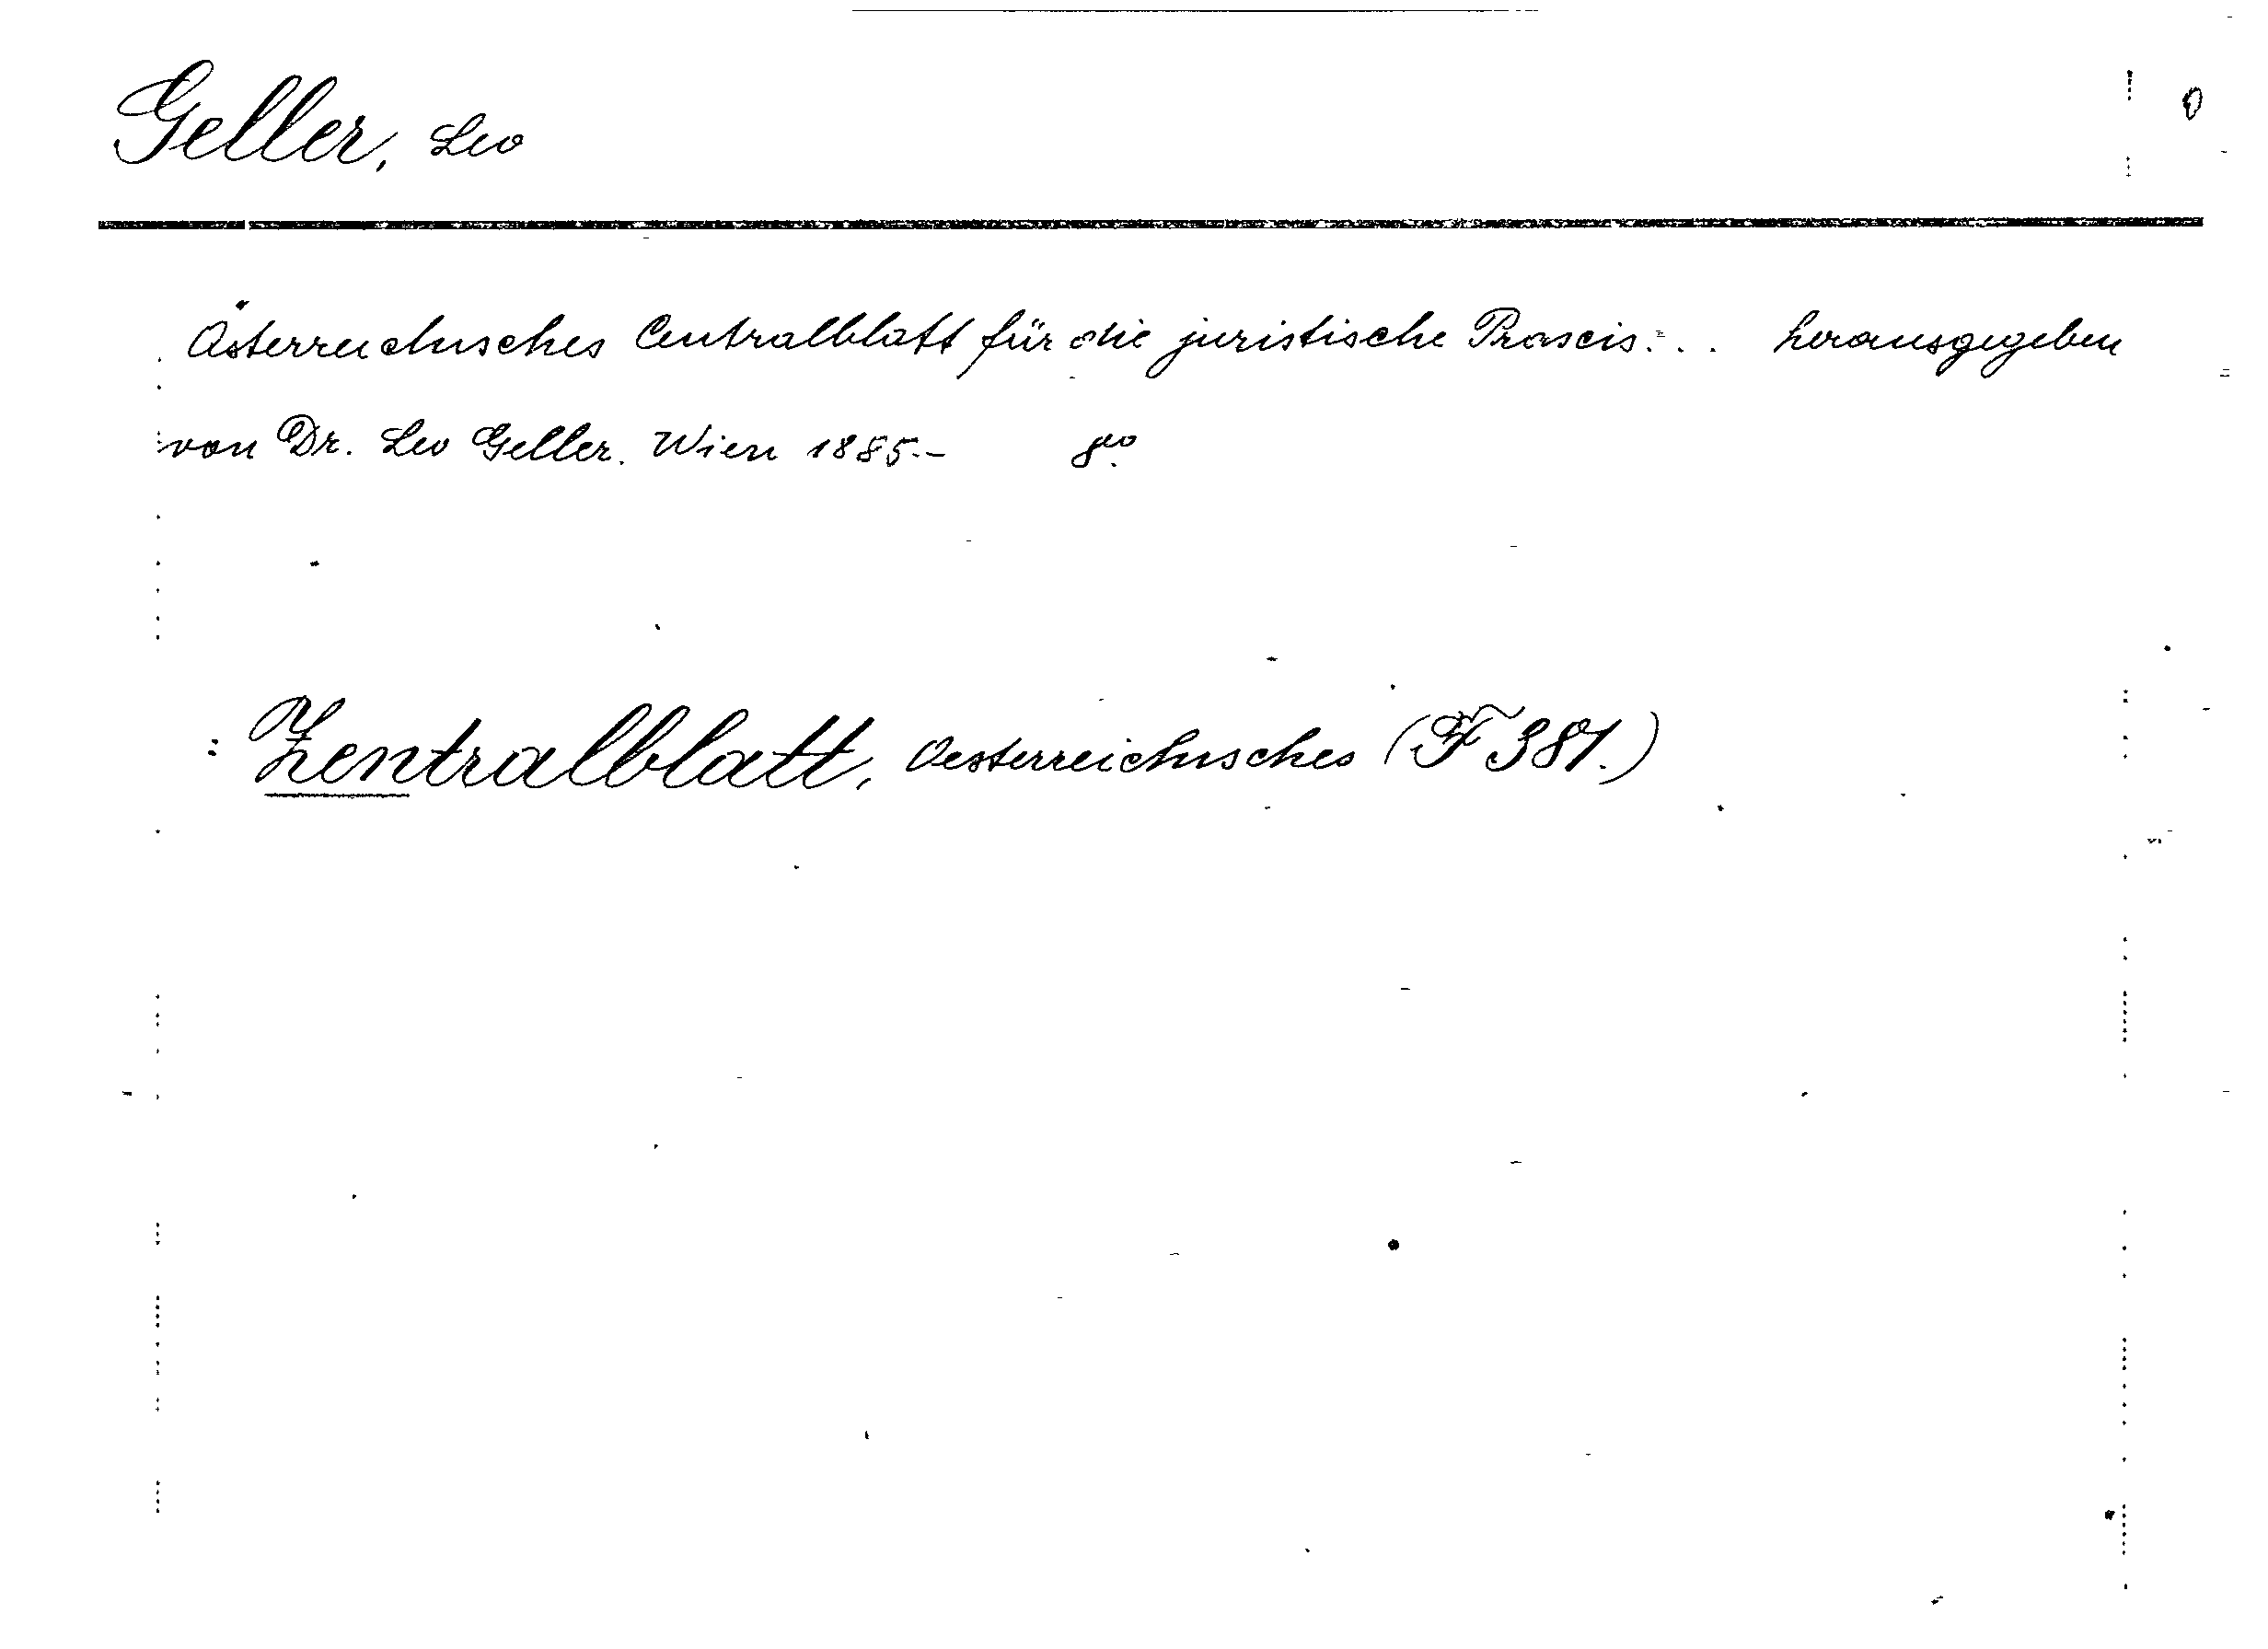 Geller, Leo
Österreichisches Centralblatt für die juristische Praxis... herausgegeben
von Dr. Leo Geller. Wien 1885.- 8vo
: Zentralblatt, Oesterreichisches (F 381.)